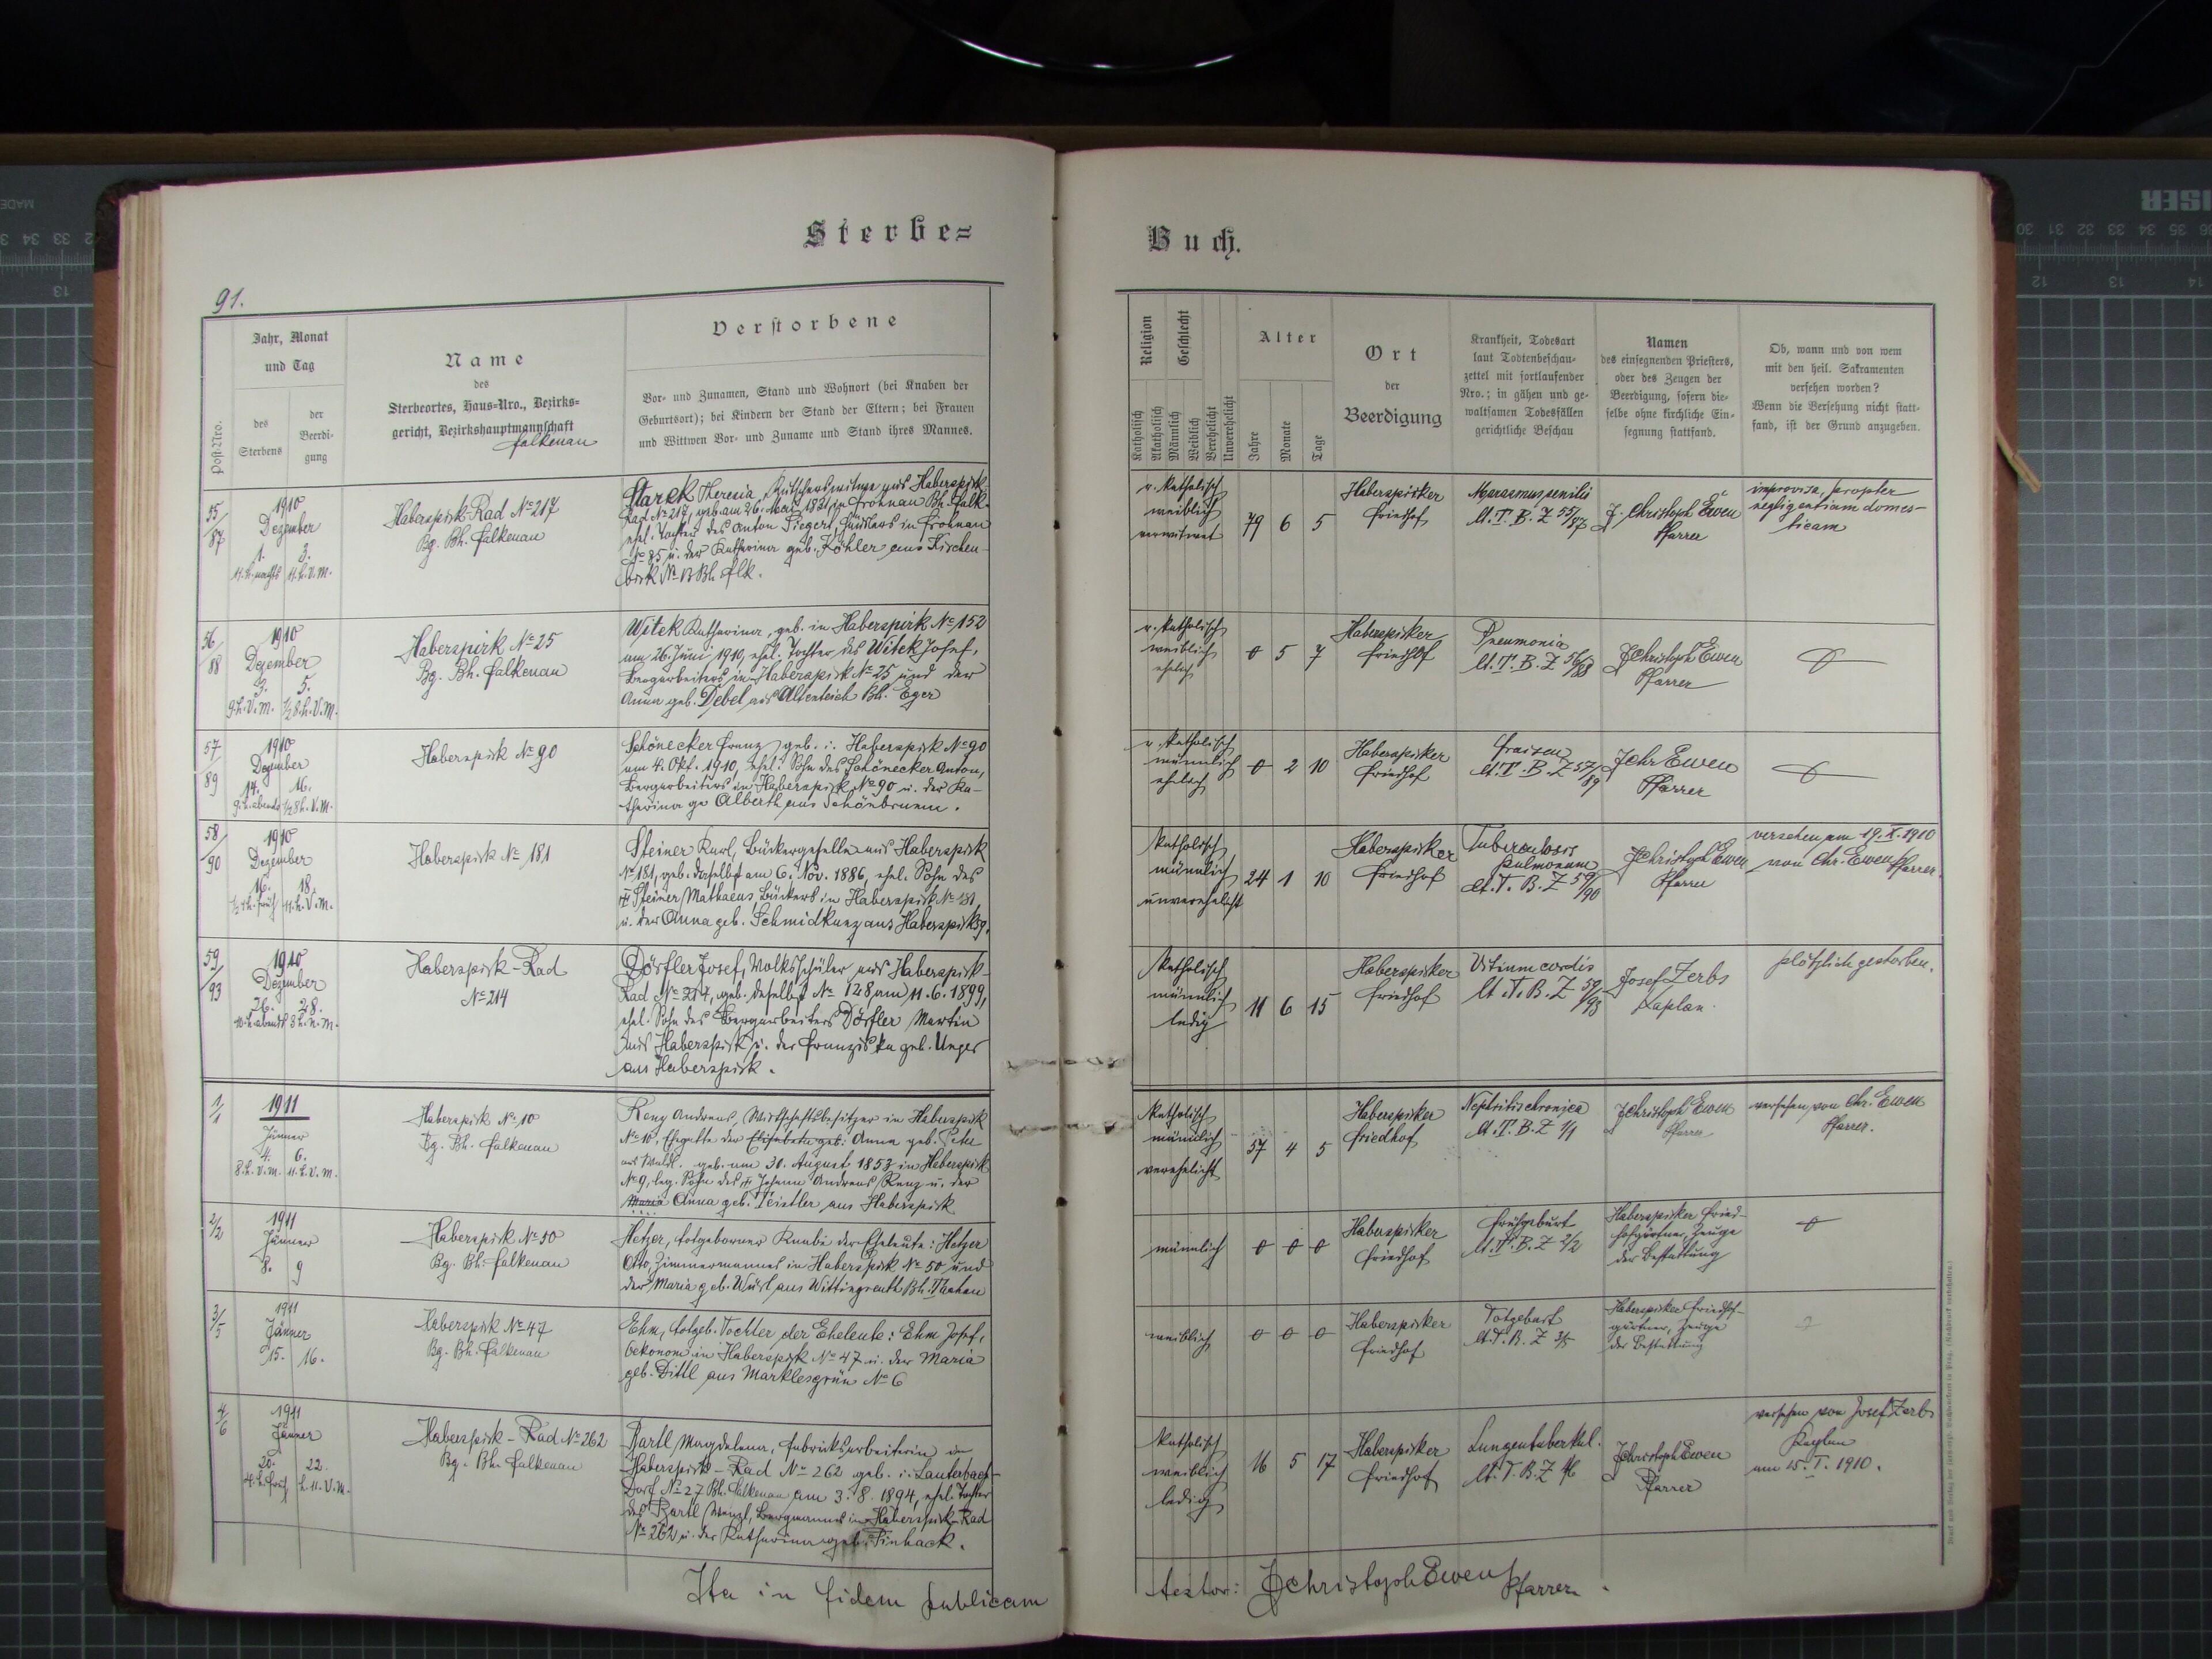 Sterbe=
Buch.
91.
Post-Nro.
Jahr, Monat
und Tag
des
Sterbens
der
Beerdi-
gung
Name
des
Sterbeortes, Haus-Nro., Bezirks=
gericht, Bezirkshauptmannschaft
Falkenau
Verstorbene
Vor- und Zunamen, Stand und Wohnort (bei Knaben der
Geburtsort); bei Kindern der Stand der Eltern; bei Frauen
und Wittwen Vor- und Zuname und Stand ihres Mannes.
Religion
Katholisch
Akatholisch
Geschlecht
Männlich
Weiblich
Verehelicht
Unverehelicht
Alter
Jahre
Monate
Tage
Ort
der
Beerdigung
Krankheit, Todesart
laut Todtenbeschau-
zettel mit fortlaufender
Nro.; in gähen und ge-
waltsamen Todesfällen
gerichtliche Beschau
Namen
des einsegnenden Priesters,
oder des Zeugen der
Beerdigung, sofern die-
selbe ohne kirchliche Ein-
segnung stattfand.
Ob, wann und von wem
mit den heil. Sakramenten
versehen worden?
Wenn die Versehung nicht statt-
fand, ist der Grund anzugeben.
55/87
1910
Dezember
1. 3.
11.h. nachts 11.h.V.M.
Haberspirk-Rad No 217
Bg. Bh. Falkenau
Starek Theresia, Kutscherswitwe aus Haberspirk-
Rad No 217, geb. am 26. Mai 1831 in Frohnau Bh. Falk.
ehel. Tochter des Anton Siegert, Häuslers in Frohnau
No 85 u. der Katharina geb. Köhler aus Kirchen-
birk No 13 Bh. Flk.
r. katholisch
weiblich
verwitwet
79 6 5
Haberspirker
Friedhof
Marasmus senilis
lt. T. B. Z 55/87
J. Christoph Ewen
Pfarrer
improvisa, propter
negligentiam domes-
ticam
56/88
1910
Dezember
3. 5.
9.h.V.M. ½8.h.V.M.
Haberspirk No 25
Bg. Bh. Falkenau
Witek Katharina, geb. in Haberspirk No 152
am 26. Juni 1910, ehel. Tochter des Witek Josef,
Bergarbeiters in Haberspirk No 25 und der
Anna geb. Debel aus Altenteich Bh. Eger
r. katholisch
weiblich
ehelich
0 5 7
Haberspirker
Friedhof
Pneumonia
lt. T. B. Z 56/88
J Christoph Ewen
Pfarrer
57/89
1910
Dezember
14. 16.
9.h. abends ½8h.V.M.
Haberspirk No 90
Schönecker Franz, geb. i. Haberspirk No 90
am 4. Okt. 1910, ehel. Sohn des Schönecker Anton,
Bergarbeiters in Haberspirk No 90 u. der Ka-
tharina ge Alberth aus Schönbrunn.
r. katholisch
männlich
ehelich
0 2 10
Haberspirker
Friedhof
Fraisen
lt. T. B. Z 57/89
J Chr Ewen
Pfarrer
58/90
1910
Dezember
16. 18.
11.h.V.M.
Haberspirk No 181
Steiner Karl, Bäckergeselle aus Haberspirk
No 181, geb. daselbst am 6. Nov. 1886, ehel. Sohn des
Steiner Mathaeus Bäckers in Haberspirk No 181
u. der Anna geb. Schmidkunz aus Haberspirk 59.
katholisch
männlich
unverehelicht
24 1 10
Haberspirker
Friedhof
Tuberculosis
pulmonum
lt. T. B. Z 59/90
J Christoph Ewen
Pfarrer
versehen am 19. X. 1910
von Chr. Ewen Pfarrer.
59/93
1910
Dezember
26. 28.
10.h. abends 3h.n.M.
Haberspirk-Rad
No 214
Dörfler Josef, Volksschüler aus Haberspirk-
Rad No 214, geb. daselbst No 128 am 11.6.1899,
ehel. Sohn des Bergarbeiters Dörfler Martin
aus Haberspirk u. der Franziska geb. Unger
aus Haberspirk.
katholisch
männlich
ledig
11 6 15
Haberspirker
Friedhof
Vitium cordis
lt. T. B. Z 59/93
Josef Zerbs
Kaplan.
plötzlich gestorben.
1/1
1911
Jänner
4. 6.
8.h.v.m. 11.h.v.m.
Haberspirk No 10
Bg. Bh. Falkenau
Renz Andreas, Wirtschaftsbesitzer in Haberspirk
No 10, Ehegatte der Elisabeta geb: Anna geb.
geb. am 30. August 1853 in Haberspirk
No 9, leg. Sohn des Johann Andreas Renz u. der
Maria Anna geb. Teistler aus Haberspirk
katholisch
männlich
verehelicht
57 4 5
Haberspirker
Friedhof
Nephritis chronica
lt. T. B. Z 1/1
J Christoph Ewen
Pfarrer
versehen von Chr. Ewen
Pfarrer.
2/2
1911
Jänner
8. 9
Haberspirk No 50
Bg. Bh. Falkenau
Hetzer, totgeborner Knabe der Eheleute: Hetzer
Otto, Zimmermannes in Haberspirk No 50 und
der Maria geb. Würl aus Wittingreuth Bh. Tachau
männlich
0 0 0
Haberspirker
Friedhof
Frühgeburt
lt. T. B. Z 2/2
Haberspirker Fried-
hofgärtner, Zeuge
der Bestattung
3/5
1911
Jänner
15. 16.
Haberspirk No 47
Bg. Bh. Falkenau
Ehm, totgeb. Tochter der Eheleute: Ehm Josef,
Oekonom in Haberspirk No 47 u. der Maria
geb. Dittl aus Marklesgrün No 6
weiblich
0 0 0
Haberspirker
Friedhof
Totgeburt
lt. T. B. Z 3/5
Haberspirker Friedhof-
gärtner, Zeuge
der Bestattung
4/6
1911
Jänner
20. 22.
4.h. früh h.11.V.M.
Haberspirk-Rad No 262
Bg. Bh. Falkenau
Bartl Magdelena, Fabriksarbeiterin in
Haberspirk-Rad No 262 geb. i. Lauterbach-
Dorf No 27 Bh. Falkenau am 3.8.1894, ehel. Tochter
des Bartl Wenzl, Bergmannes in Haberspirk-Rad
No 262 u. der Katharina geb. Pinhack.
katholisch
weiblich
ledig
16 5 17
Haberspirker
Friedhof
Lungentuberkul.
lt. T. B. Z 4/6
J Christoph Ewen
Pfarrer
versehen von Josef Zerbs
Kaplan
am 15. I. 1910.
Ita in fidem publicam
testor: J Christoph Ewen Pfarrer.